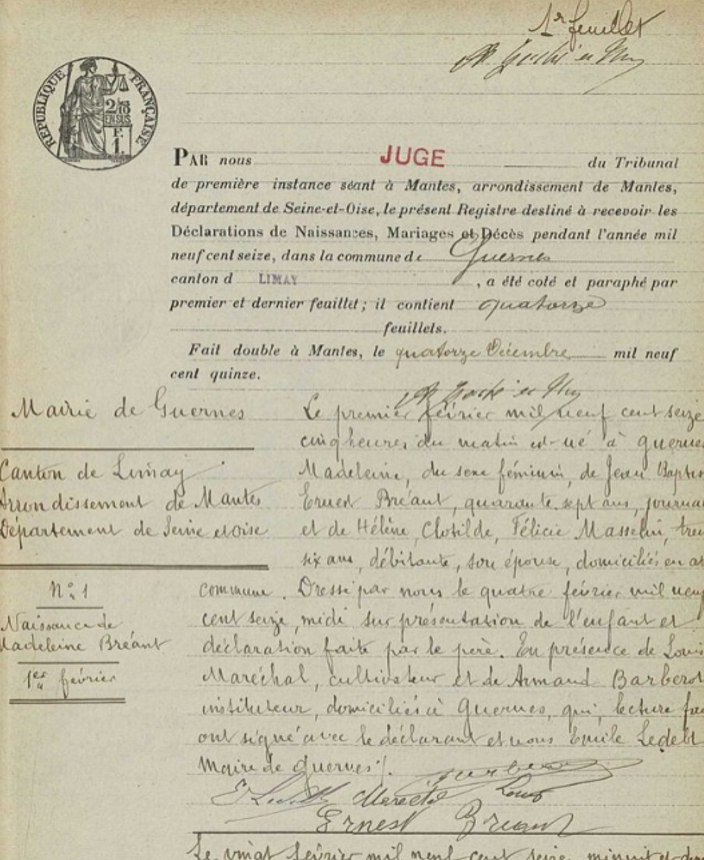 1r feuillet
RÉPUBLIQUE FRANÇAISE
2/10 EN SUS
F.
1.
PAR nous JUGE du Tribunal
de première instance séant à Mantes, arrondissement de Mantes,
département de Seine-et-Oise, le présent Registre destiné à recevoir les
Déclarations de Naissances, Mariages et Décès pendant l'année mil
neuf cent seize, dans la commune de Guernes
canton d LIMAY, a été coté et paraphé par
premier et dernier feuillet; il contient quatorze
feuillets.
Fait double à Mantes, le quatorze Décembre mil neuf
cent quinze.
Mairie de Guernes
Canton de Limay
Arrondissement de Mantes
Département de Seine et Oise
N° 1
Naissance de
Madeleine Bréant
1er février
Le premier février mil neuf cent seize
cinq heures du matin est né à Guernes
Madeleine, du sexe féminin, de Jean Baptis
Ernest Bréant, quarante sept ans, journa
et de Hélène, Clotilde, Félicie Masselin, tren
six ans, débitante, son épouse, domiciliés en
commune. Dressé par nous le quatre février mil neuf
cent seize, midi sur présentation de l'enfant et
déclaration faite par le père. En présence de Louis
Maréchal, cultivateur et de Armand Barberot
instituteur, domiciliés à Guernes, qui, lecture fai
ont signé avec le déclarant et nous Emile Ledebt
Maire de Guernes ./.
Maréchal Louis
Ernest Bréant
Le vingt février mil neuf cent seize, minuit et